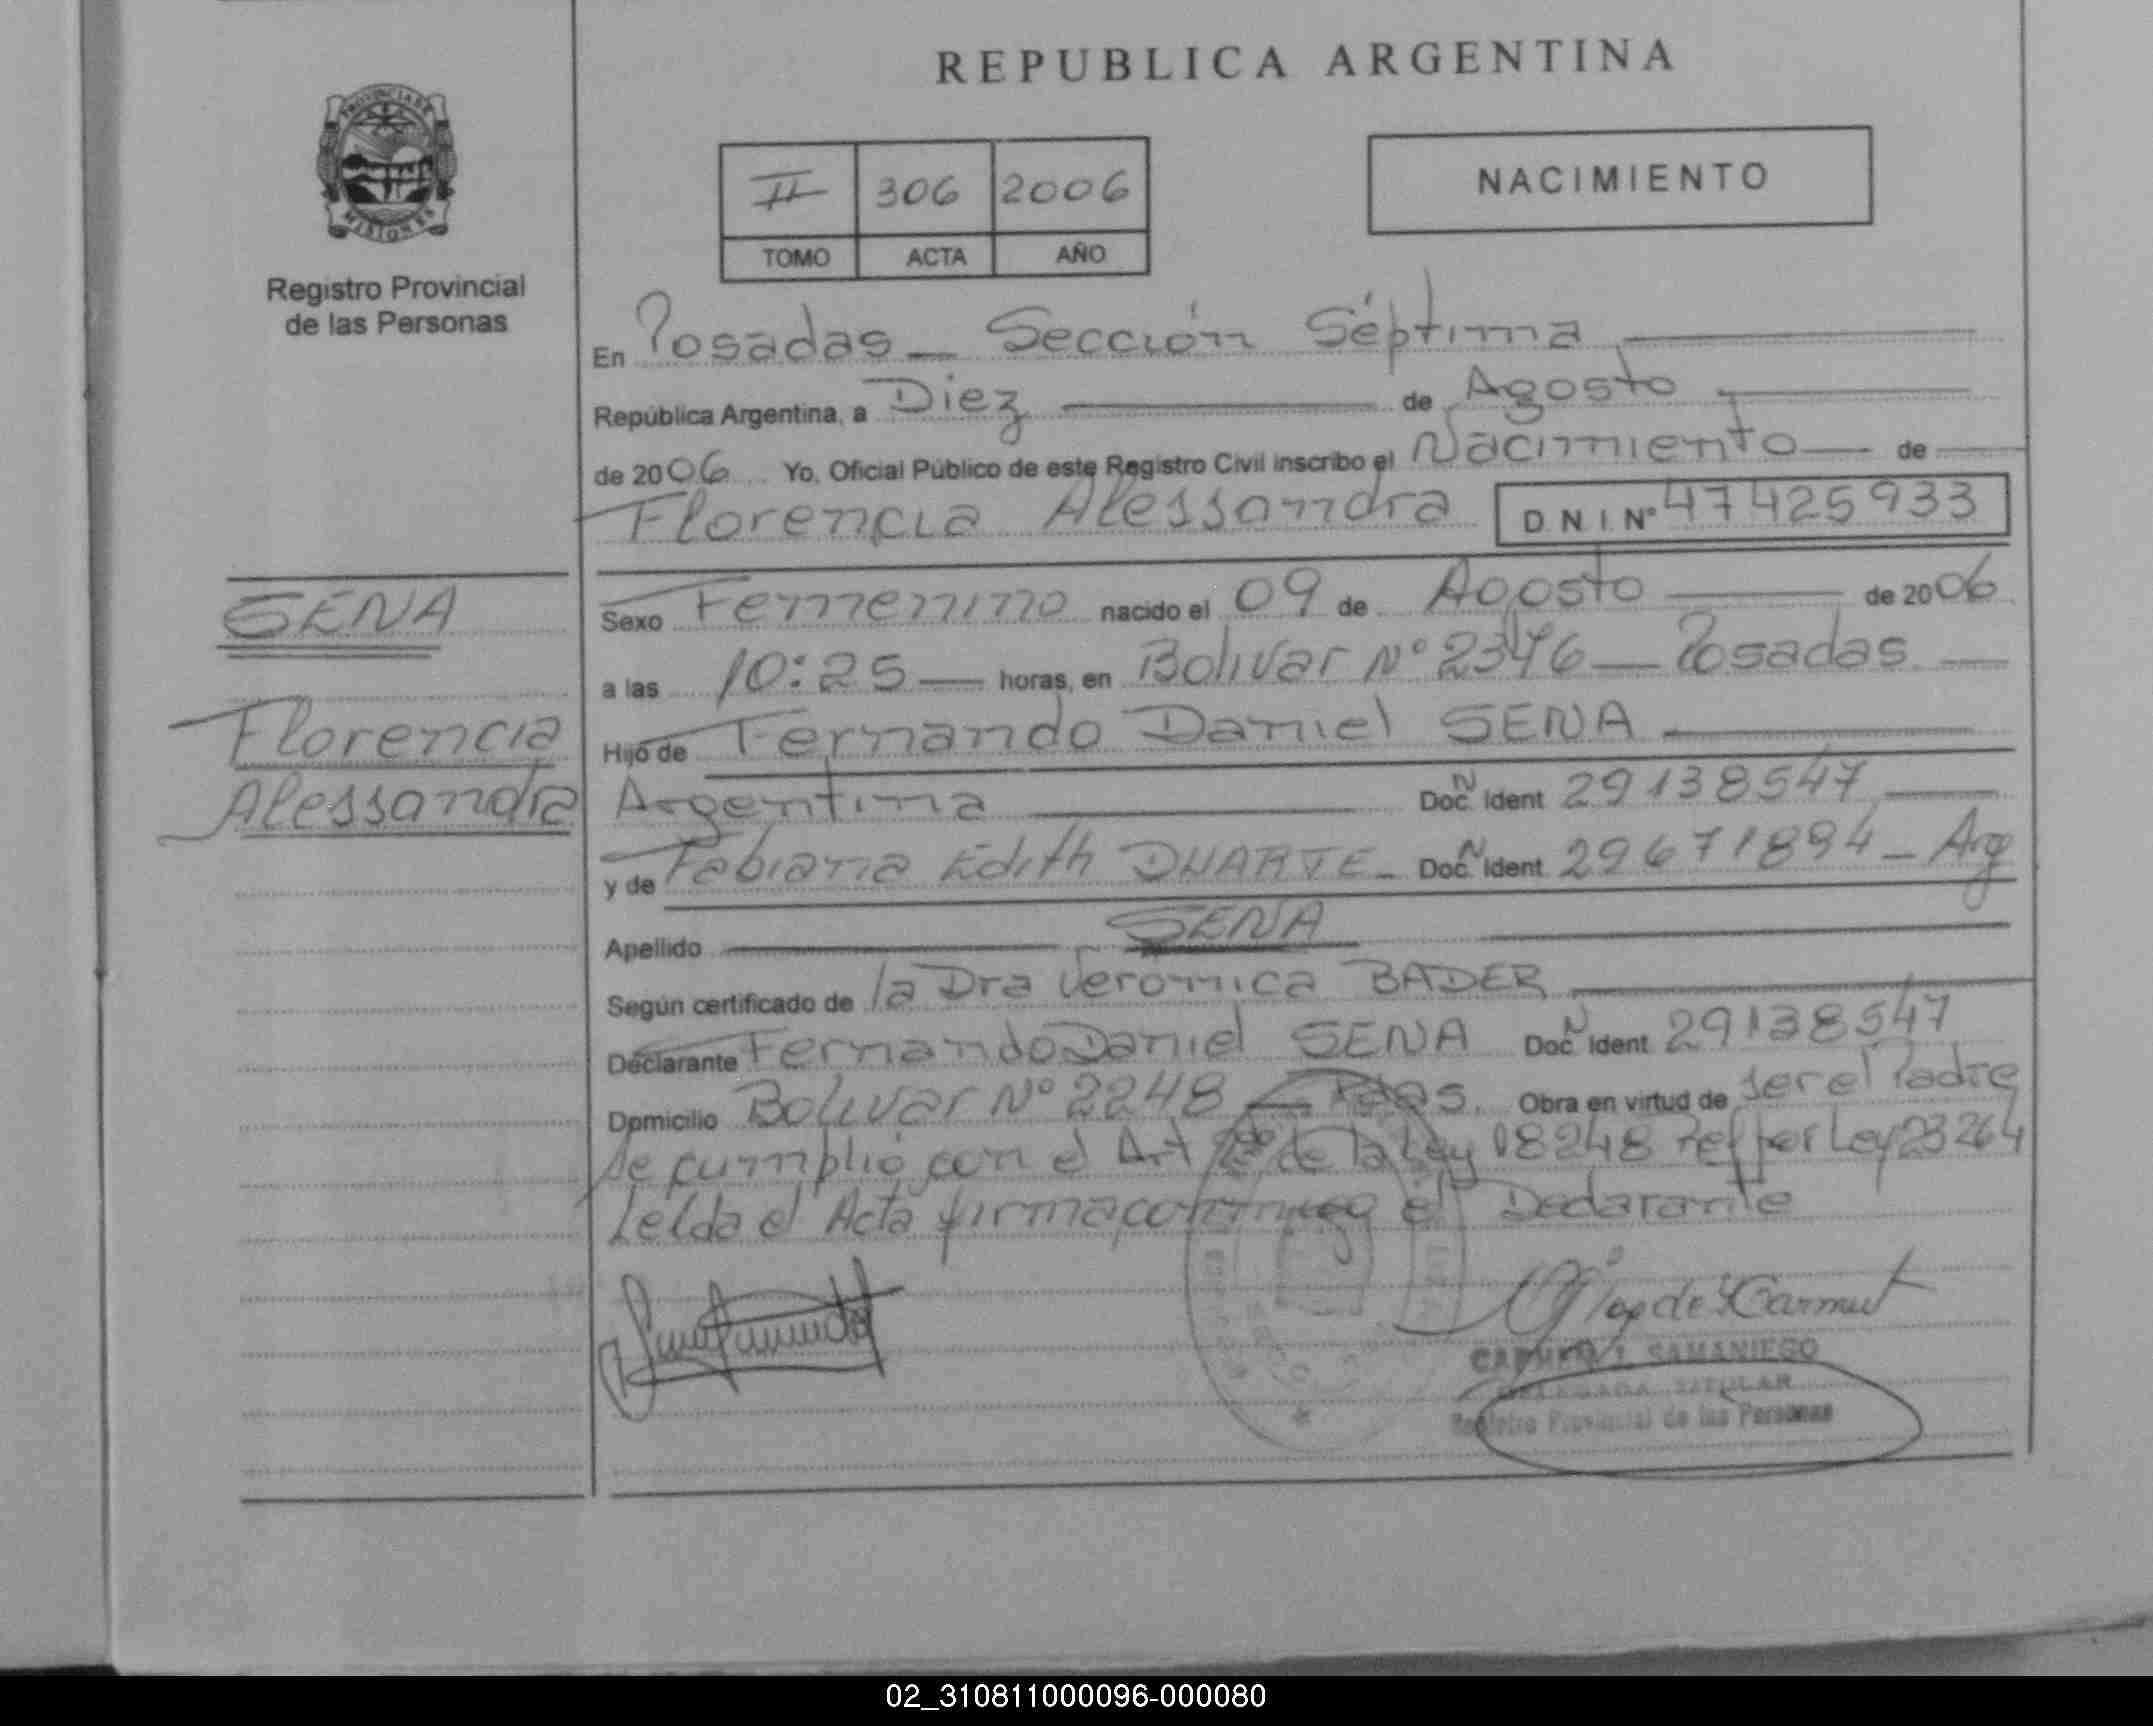 REPUBLICA ARGENTINA
PROVINCIA DE
MISIONES
Registro Provincial
de las Personas
II 306 2006
TOMO ACTA AÑO
NACIMIENTO
En Posadas _ Sección Séptima
República Argentina, a Diez de Agosto
de 2006 Yo, Oficial Público de este Registro Civil inscribo el Nacimiento de
Florencia Alessandra D.N.I. Nº 47425933
SENA
Florencia
Alessandra
Sexo Femenino nacido el 09 de Agosto de 2006
a las 10:25 horas, en Bolivar Nº 2376 _ Posadas
Hijo de Fernando Daniel SENA
Argentina Doc. N Ident 29138547
y de Fabiana Edith DUARTE _ Doc. N Ident 29671894 _ Arg
Apellido SENA
Según certificado de la Dra Veronica BADER
Declarante Fernando Daniel SENA Doc. N Ident 29138547
Domicilio Bolivar Nº 2248 _ Pdas. Obra en virtud de ser el Padre
Se cumplió con el Art de la Ley 18248 ref por Ley 23264
Leída el Acta firma conmigo el Declarante
CARMEN I. SAMANIEGO
DELEGADA TITULAR
Registro Provincial de las Personas
02_310811000096-000080